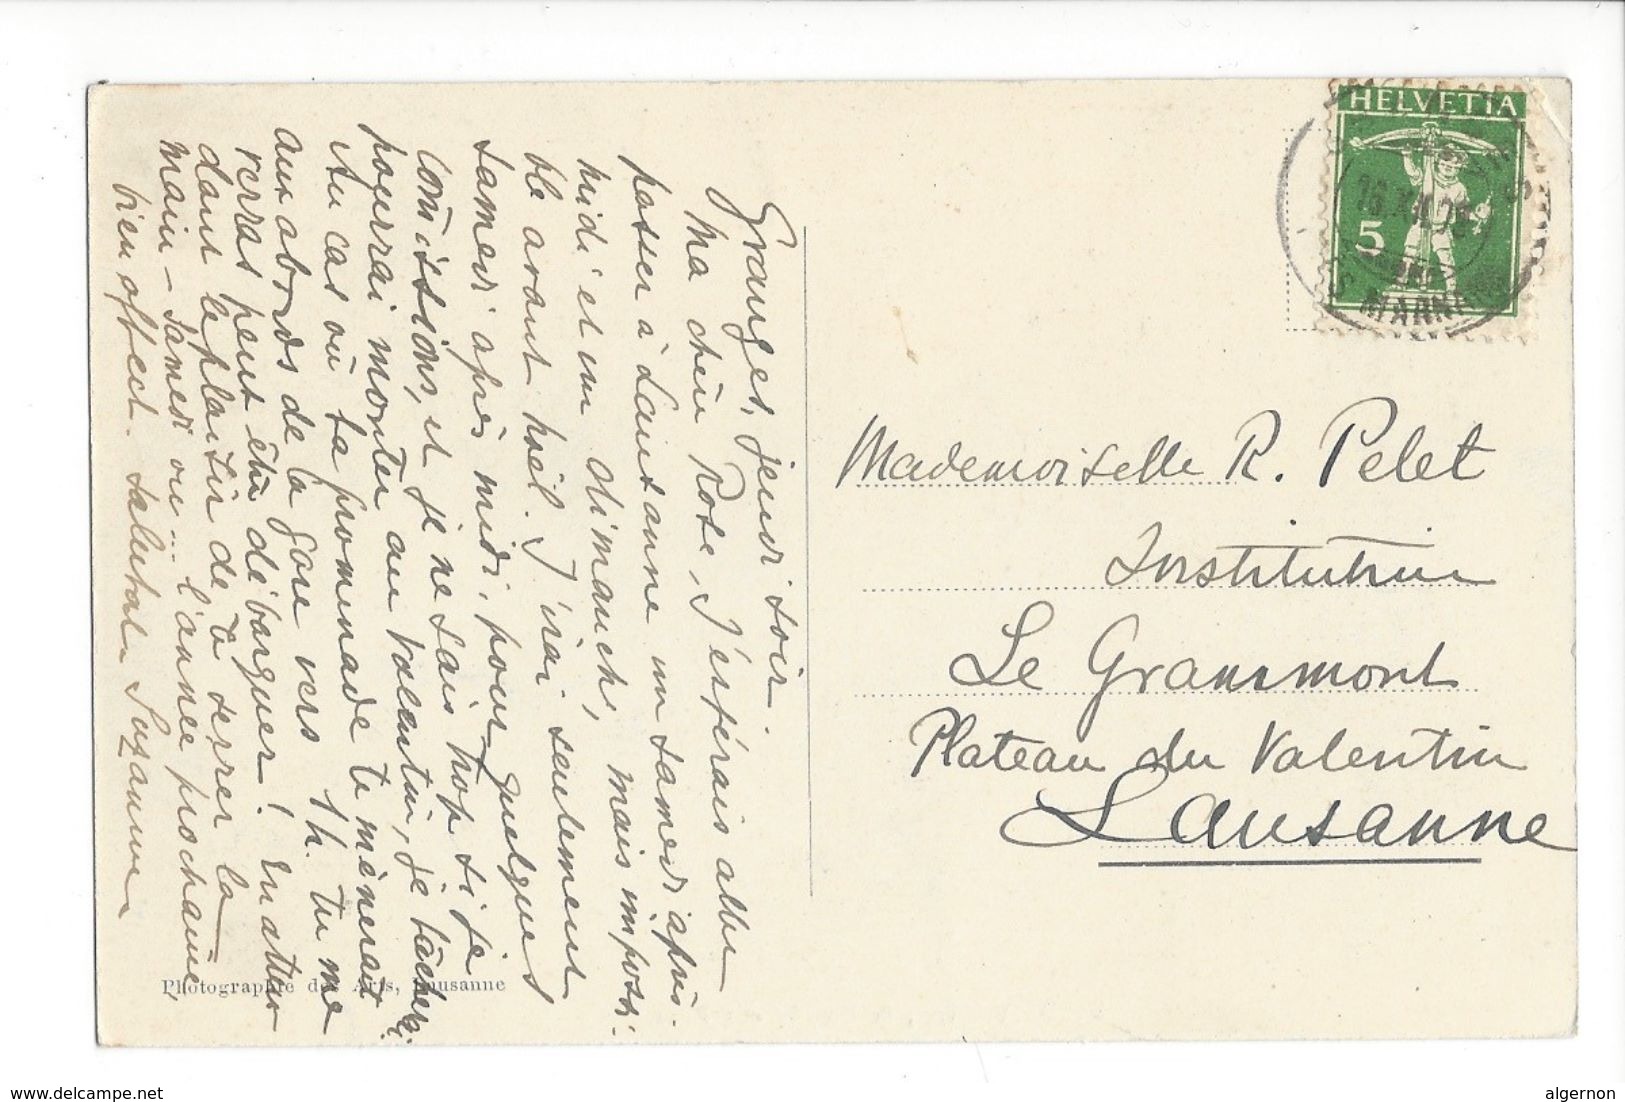 Granges, jeudi soir.
Ma chère Rose, J'espérais aller
passer à Lausanne un samedi après-
midi et un dimanche, mais impossi-
ble avant Noël. J'irai seulement
samedi après midi, pour quelques
comissions, et je ne sais trop si je
pourrai monter au Valentin, je tâcherai
Au cas où ta promenade te mènerait
aux abords de la gare vers 1h. tu me
verras peut être débarquer! En atten-
dant le plaisir de te serrer la
main - samedi ou ... l'année prochaine,
bien affect. salutat. Suzanne
Photographie des Arts, Lausanne
HELVETIA
5
MARNAND
Mademoiselle R. Pelet
Institutrice
Le Grammont
Plateau du Valentin
Lausanne
www.delcampe.net
algernon